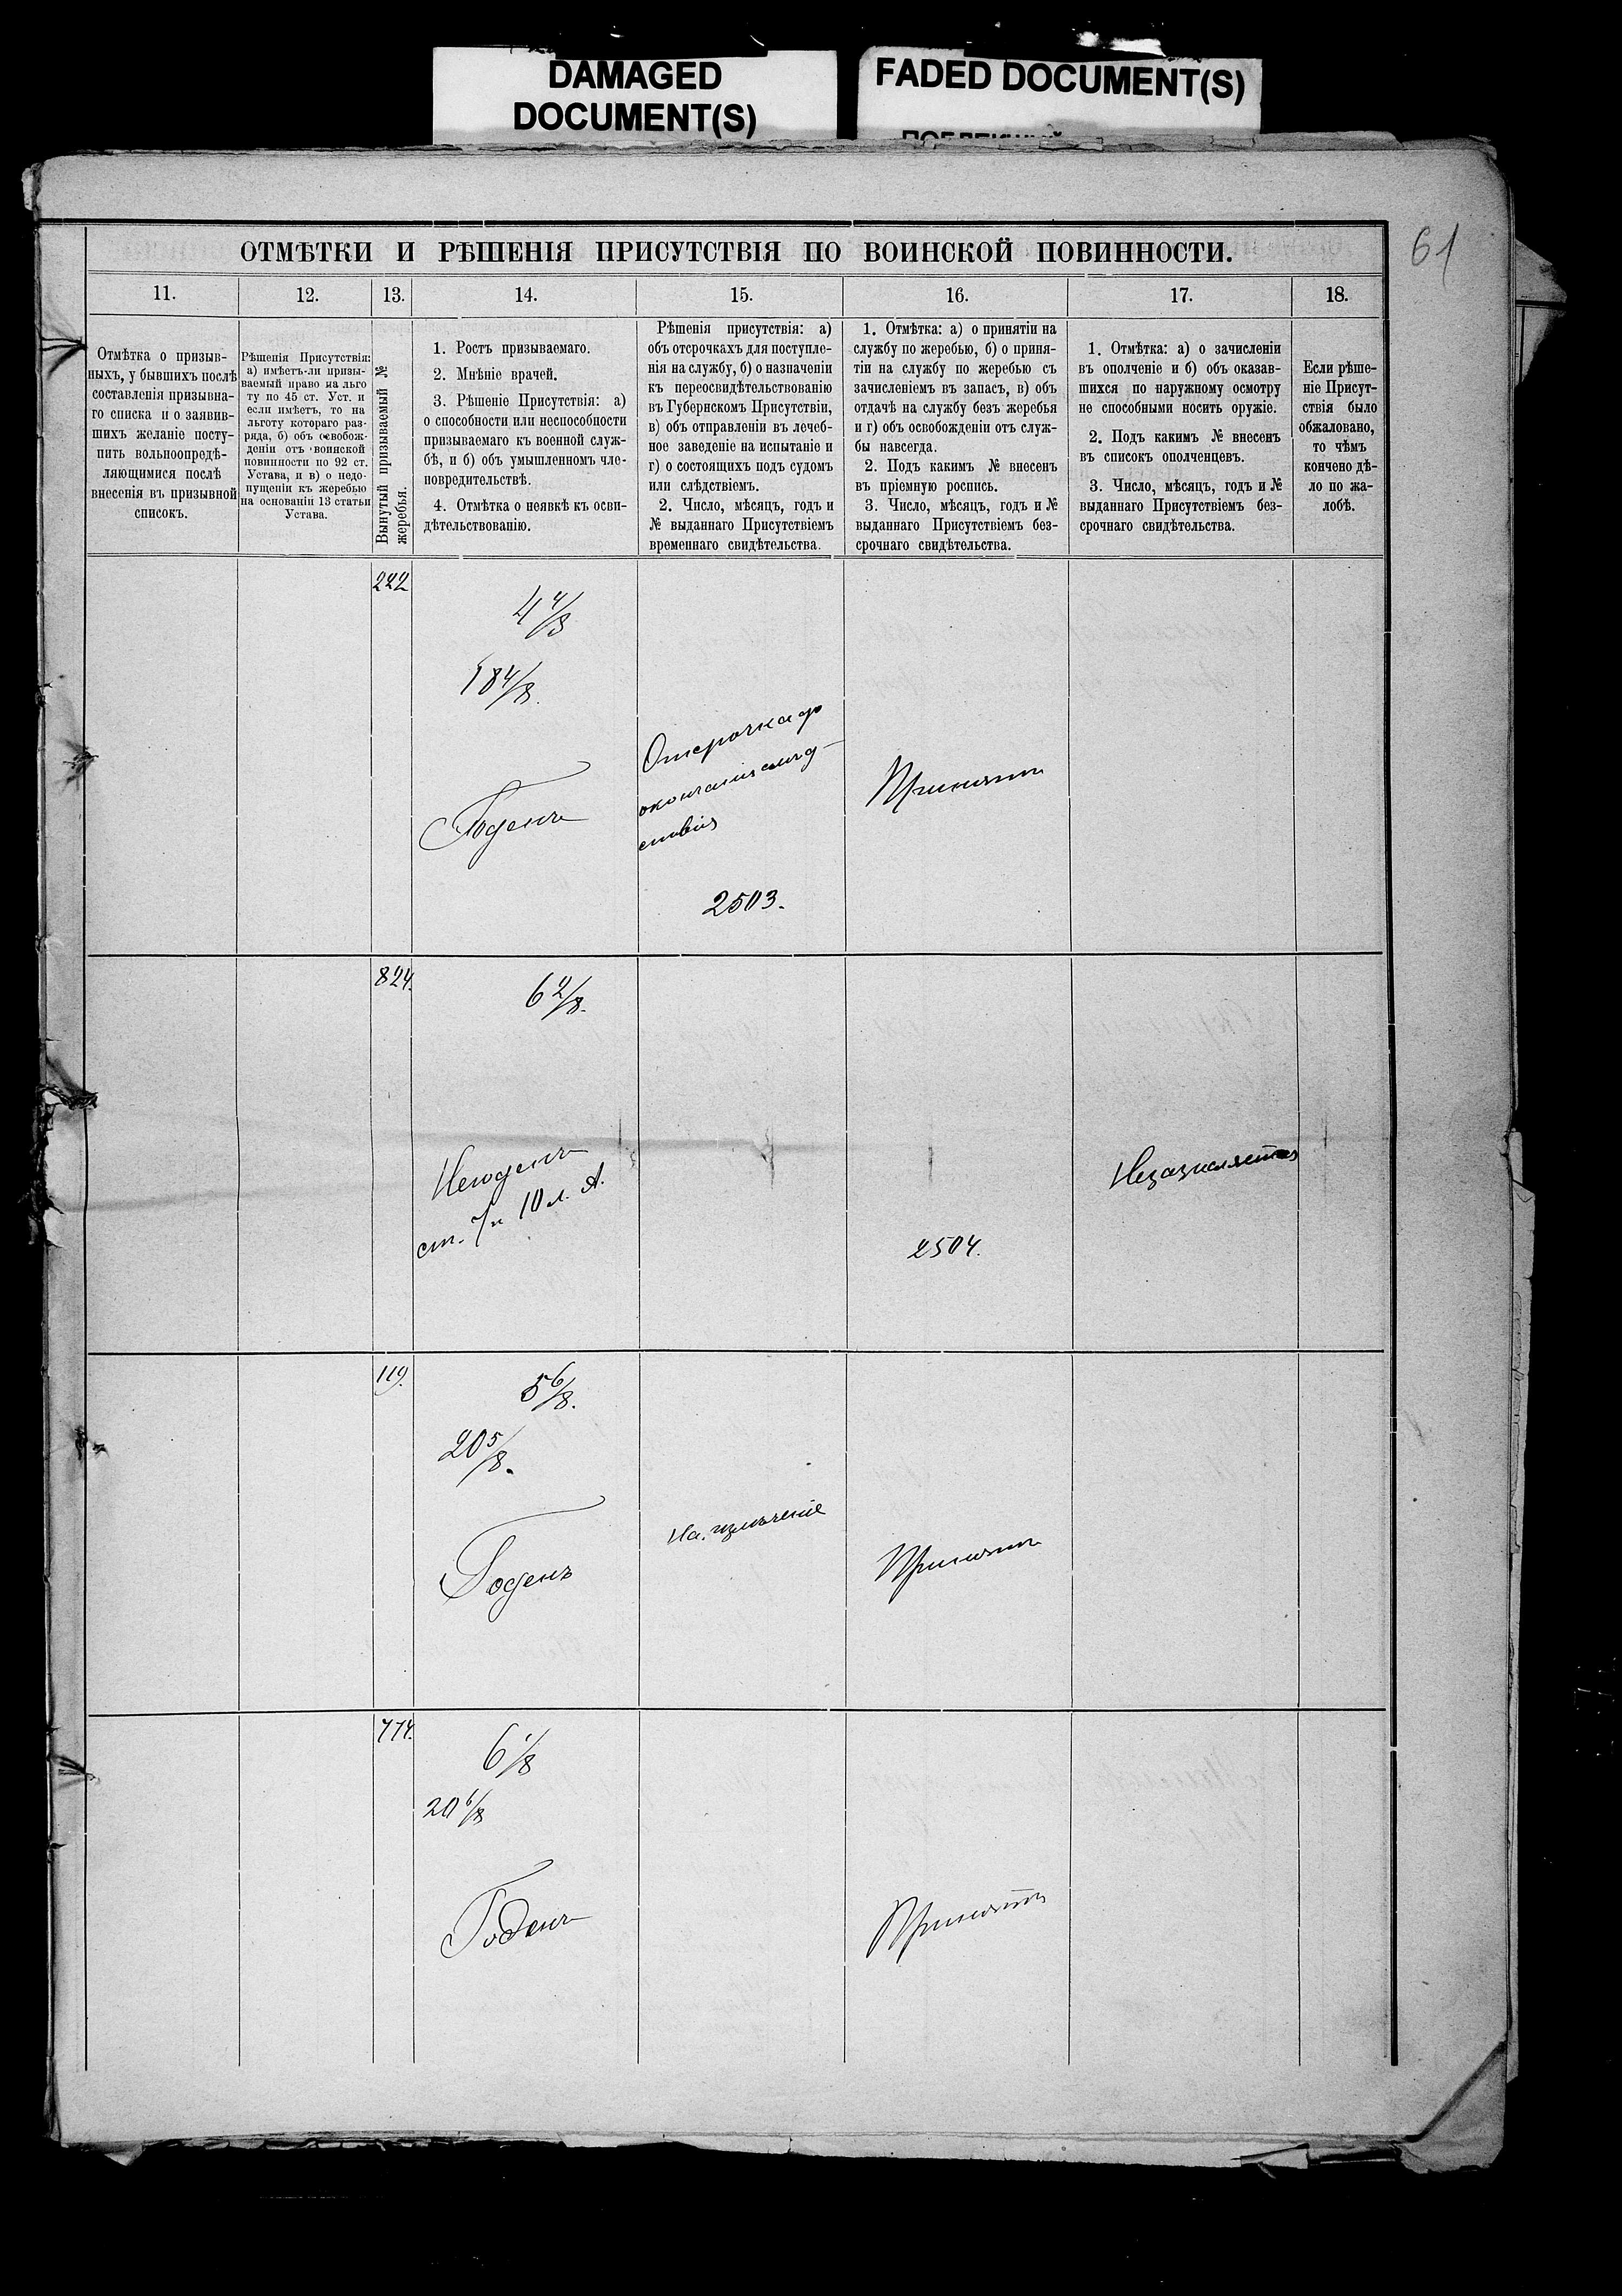 DAMAGED
DOCUMENT(S)
FADED DOCUMENT(S)
61
ОТМѢТКИ И РѢШЕНІЯ ПРИСУТСТВІЯ ПО ВОИНСКОЙ ПОВИННОСТИ.
11.
12.
13.
14.
15.
16.
17.
18.
Отмѣтка о призыв-
ныхъ, у бывшихъ послѣ
составленія призывна-
го списка и о заявив-
шихъ желаніе посту-
пить вольноопредѣ-
ляющимися послѣ
внесенія въ призывной
списокъ.
Рѣшенія Присутствія:
а) имѣетъ-ли призы-
ваемый право на льго
ту по 45 ст. Уст. и
если имѣетъ, то на
льготу котораго раз-
ряда, б) объ освобож-
деніи отъ воинской
повинности по 92 ст.
Устава, и в) о недо-
пущеніи къ жеребью
на основаніи 13 статьи
Устава.
Вынутый призываемый №
жеребья.
1. Ростъ призываемаго.
2. Мнѣніе врачей.
3. Рѣшеніе Присутствія: а)
о способности или неспособности
призываемаго къ военной служ-
бѣ, и б) объ умышленномъ чле-
новредительствѣ.
4. Отмѣтка о неявкѣ къ осви-
дѣтельствованію.
Рѣшенія присутствія: а)
объ отсрочкахъ для поступле-
нія на службу, б) о назначеніи
къ переосвидѣтельствованію
въ Губернскомъ Присутствіи,
в) объ отправленіи въ лечеб-
ное заведеніе на испытаніе и
г) о состоящихъ подъ судомъ
или слѣдствіемъ.
2. Число, мѣсяцъ, годъ и
№ выданнаго Присутствіемъ
временнаго свидѣтельства.
1. Отмѣтка: а) о принятіи на
службу по жеребью, б) о приня-
тіи на службу по жеребью съ
зачисленіемъ въ запасъ, в) объ
отдачѣ на службу безъ жеребья
и г) объ освобожденіи отъ служ-
бы навсегда.
2. Подъ какимъ № внесенъ
въ пріемную роспись.
3. Число, мѣсяцъ, годъ и №
выданнаго Присутствіемъ без-
срочнаго свидѣтельства.
1. Отмѣтка: а) о зачисленіи
въ ополченіе и б) объ оказав-
шихся по наружному осмотру
не способными носить оружіе.
2. Подъ какимъ № внесенъ
въ списокъ ополченцевъ.
3. Число, мѣсяцъ, годъ и №
выданнаго Присутствіемъ без-
срочнаго свидѣтельства.
Если рѣше-
ніе Присут-
ствія было
обжаловано,
то чѣмъ
кончено дѣ-
ло по жа-
лобѣ.
222
4 4/8
18 4/8.
Годенъ
Отсрочка до
окончанія слѣд-
ствія
2503.
Принятъ
824.
6 2/8.
Негоденъ
ст. 7 и 10 л. А.
2504.
Незачисляется
119.
5 6/8.
20 5/8.
Годенъ
На излѣченіе
Принятъ
774.
6 1/8
20 6/8
Годенъ
Принятъ